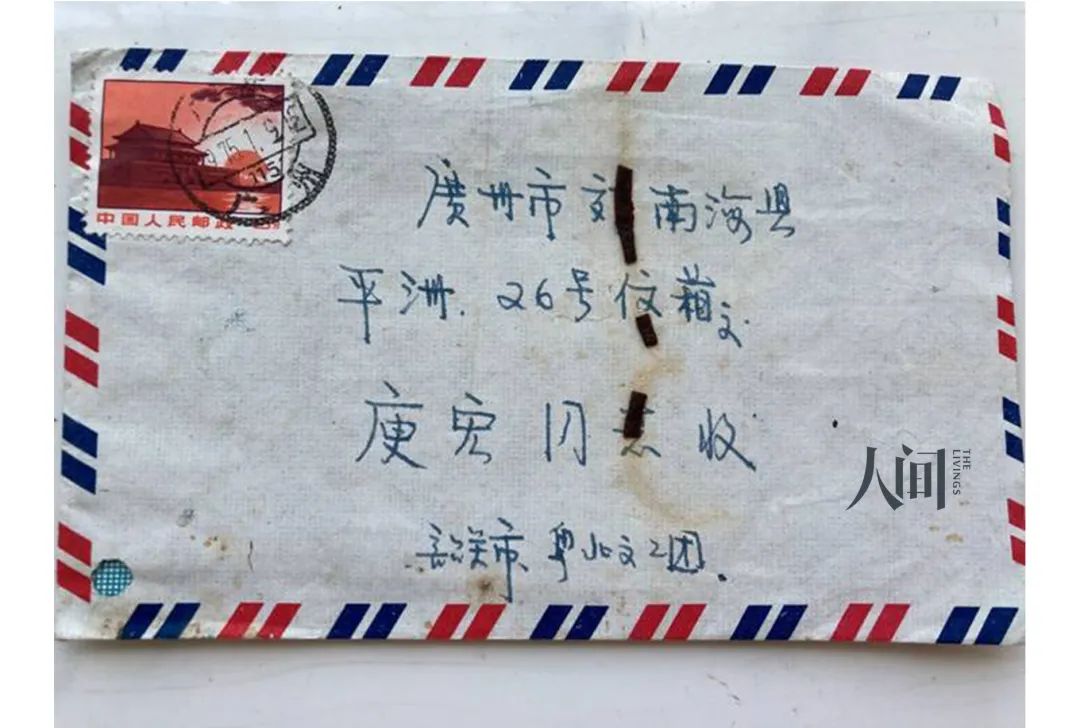 中国人民邮政
75.1.9
广州市 南海县
平洲.26号信箱交
庚宏同志收
韶关市.粤北文工团.
人间
THE LIVINGS